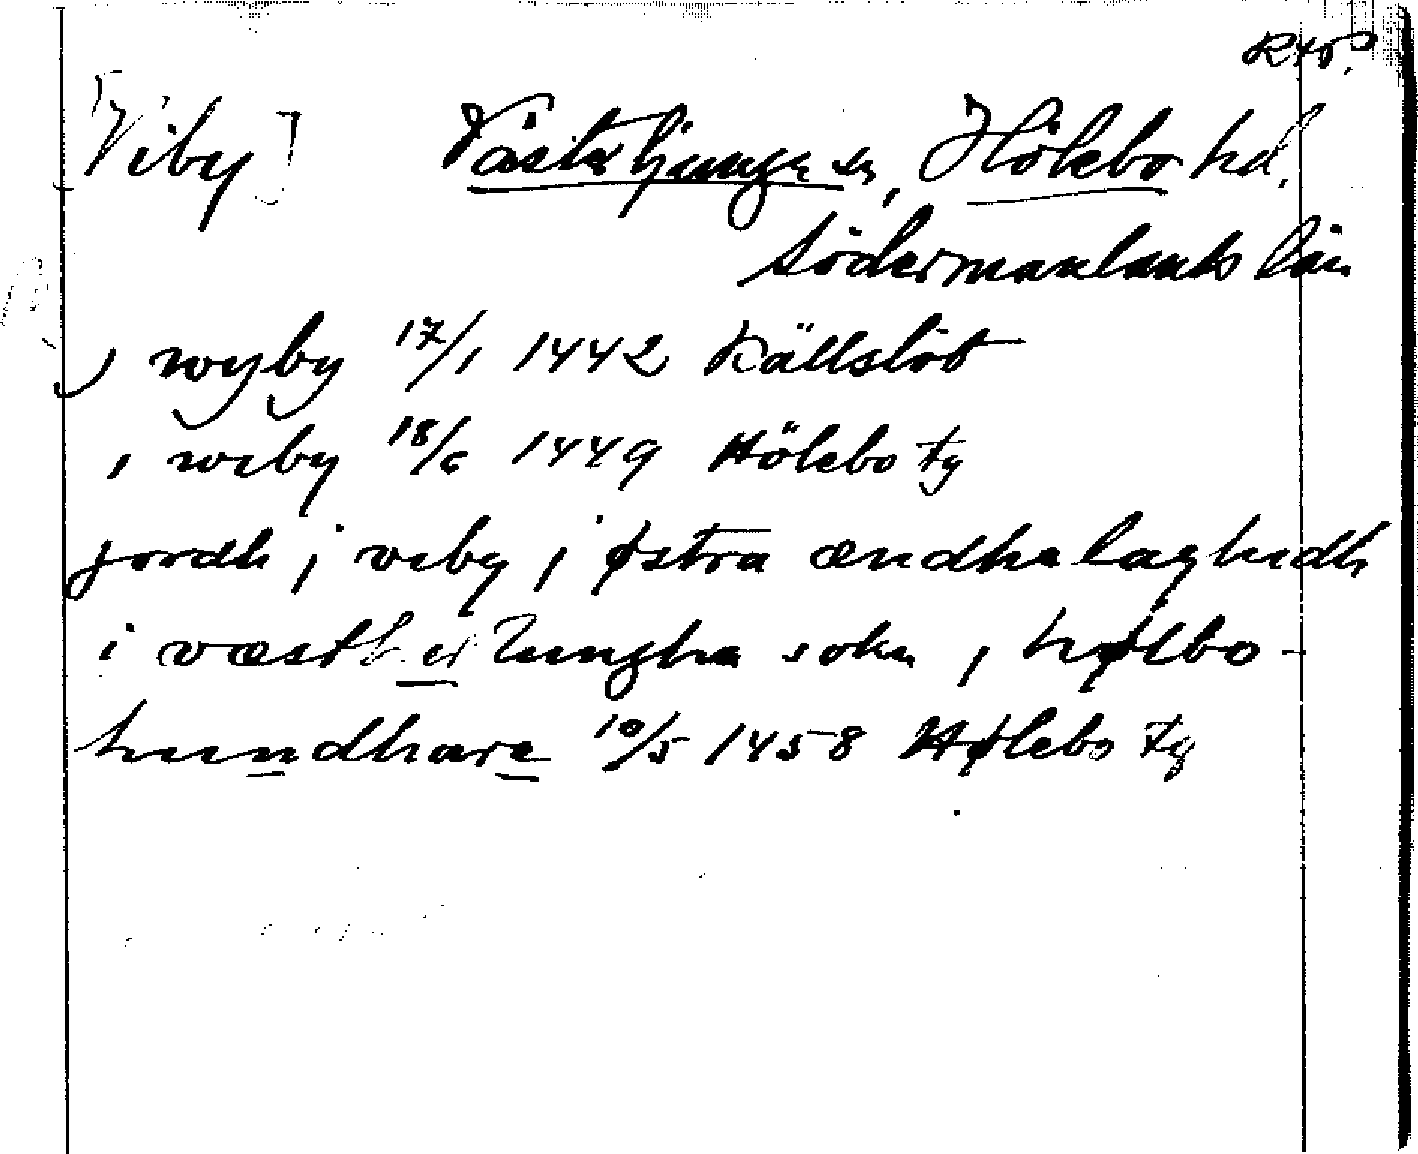 [Viby] Västerljunga sn, Hölebo hd.
Södermanlands län
j wyby 17/1 1442 Källslöt
j wiby 18/6 1449 Hölebo tg
jordh j viby j østra ændha laghedh
i væstherliungha sokn j hølbo-
hundhare 10/5 1458 Hølebo tg